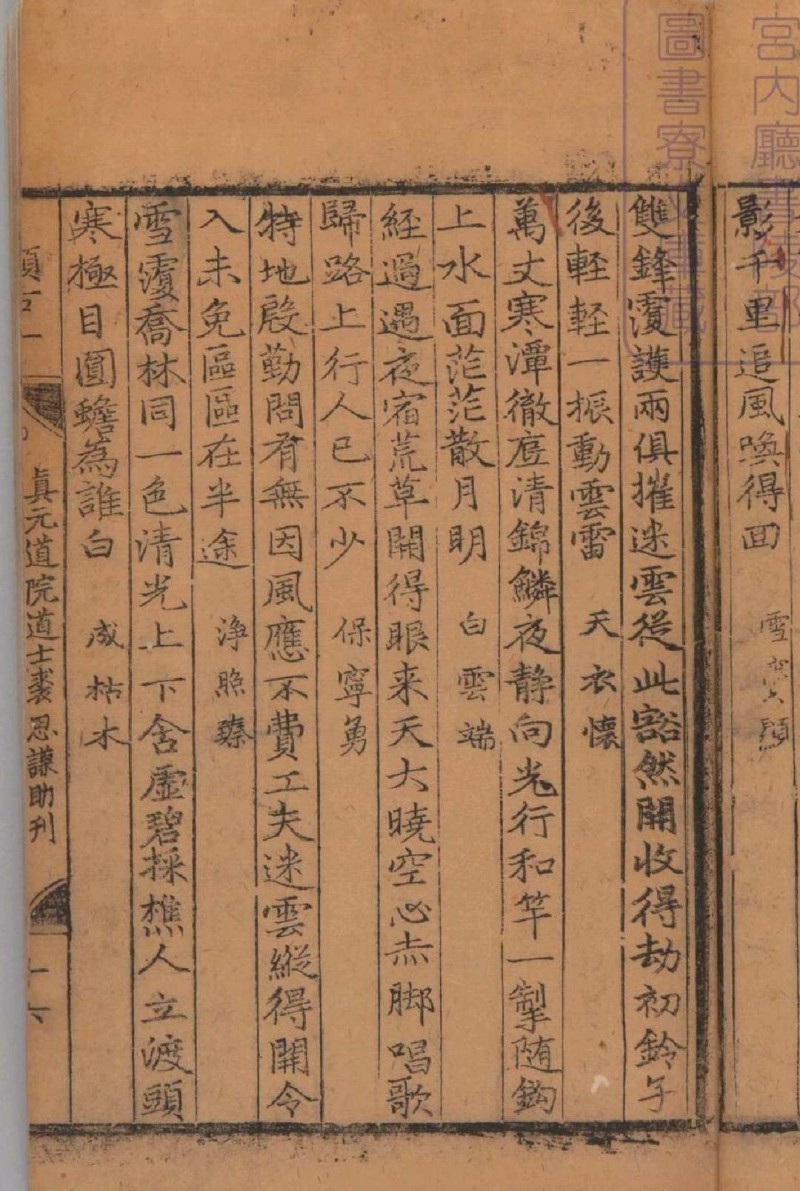 影千里追風喚得回　雪竇顯
雙鋒覆護兩俱摧迷雲從此豁然開收得劫初鈴子
後輕輕一振動雲雷　天衣懷
萬丈寒潭徹底清錦鱗夜靜向光行和竿一掣随鈎
上水面茫茫散月明　白雲端
経過遇夜宿荒草開得眼来天大曉空心赤脚唱歌
歸路上行人已不少　保寧勇
特地殷勤問有無因風應不費工夫迷雲縱得開今
入未免區區在半途　淨照臻
雪覆喬林同一色清光上下含虛碧採樵人立渡頭
寒極目圓蟾為誰白　成枯木
頌古一　真元道院道士裘思謙助刋　十六
宮内廳書陵部
圖書寮
藏